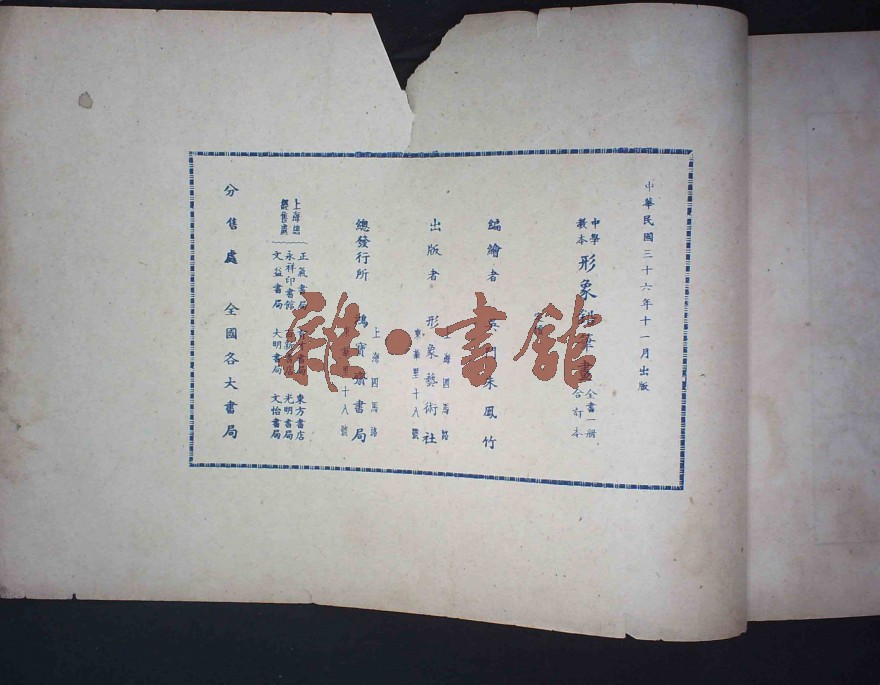 中華民國三十六年十一月出版
中學
教本
形象鉛筆畫
全書一冊
合訂本
編繪者
吳門朱鳳竹
出版者
形象藝術社
上海四馬路
東華里十八號
總發行所
鴻寶齋書局
上海四馬路
東華里十八號
上海總
經售處
正氣書局
永祥印書館
文益書局
大明書局
東方書店
光明書局
文怡書局
分售處
全國各大書局
雜·書館